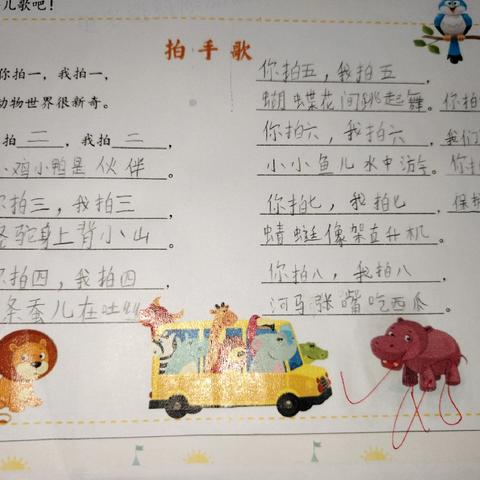 儿歌吧！
拍手歌
你拍一，我拍一，
动物世界很新奇。
拍二，我拍二，
鸡小鸭是伙伴。
你拍三，我拍三，
骆驼身上背小山。
你拍四，我拍四，
条蚕儿在吐丝
你拍五，我拍五，
蝴蝶花间跳起舞。
你拍六，我拍六，
小小鱼儿水中游。
你拍七，我拍七，
蜻蜓像架直升机。
你拍八，我拍八，
河马张嘴吃西瓜。
你拍
我们
你拍
保护